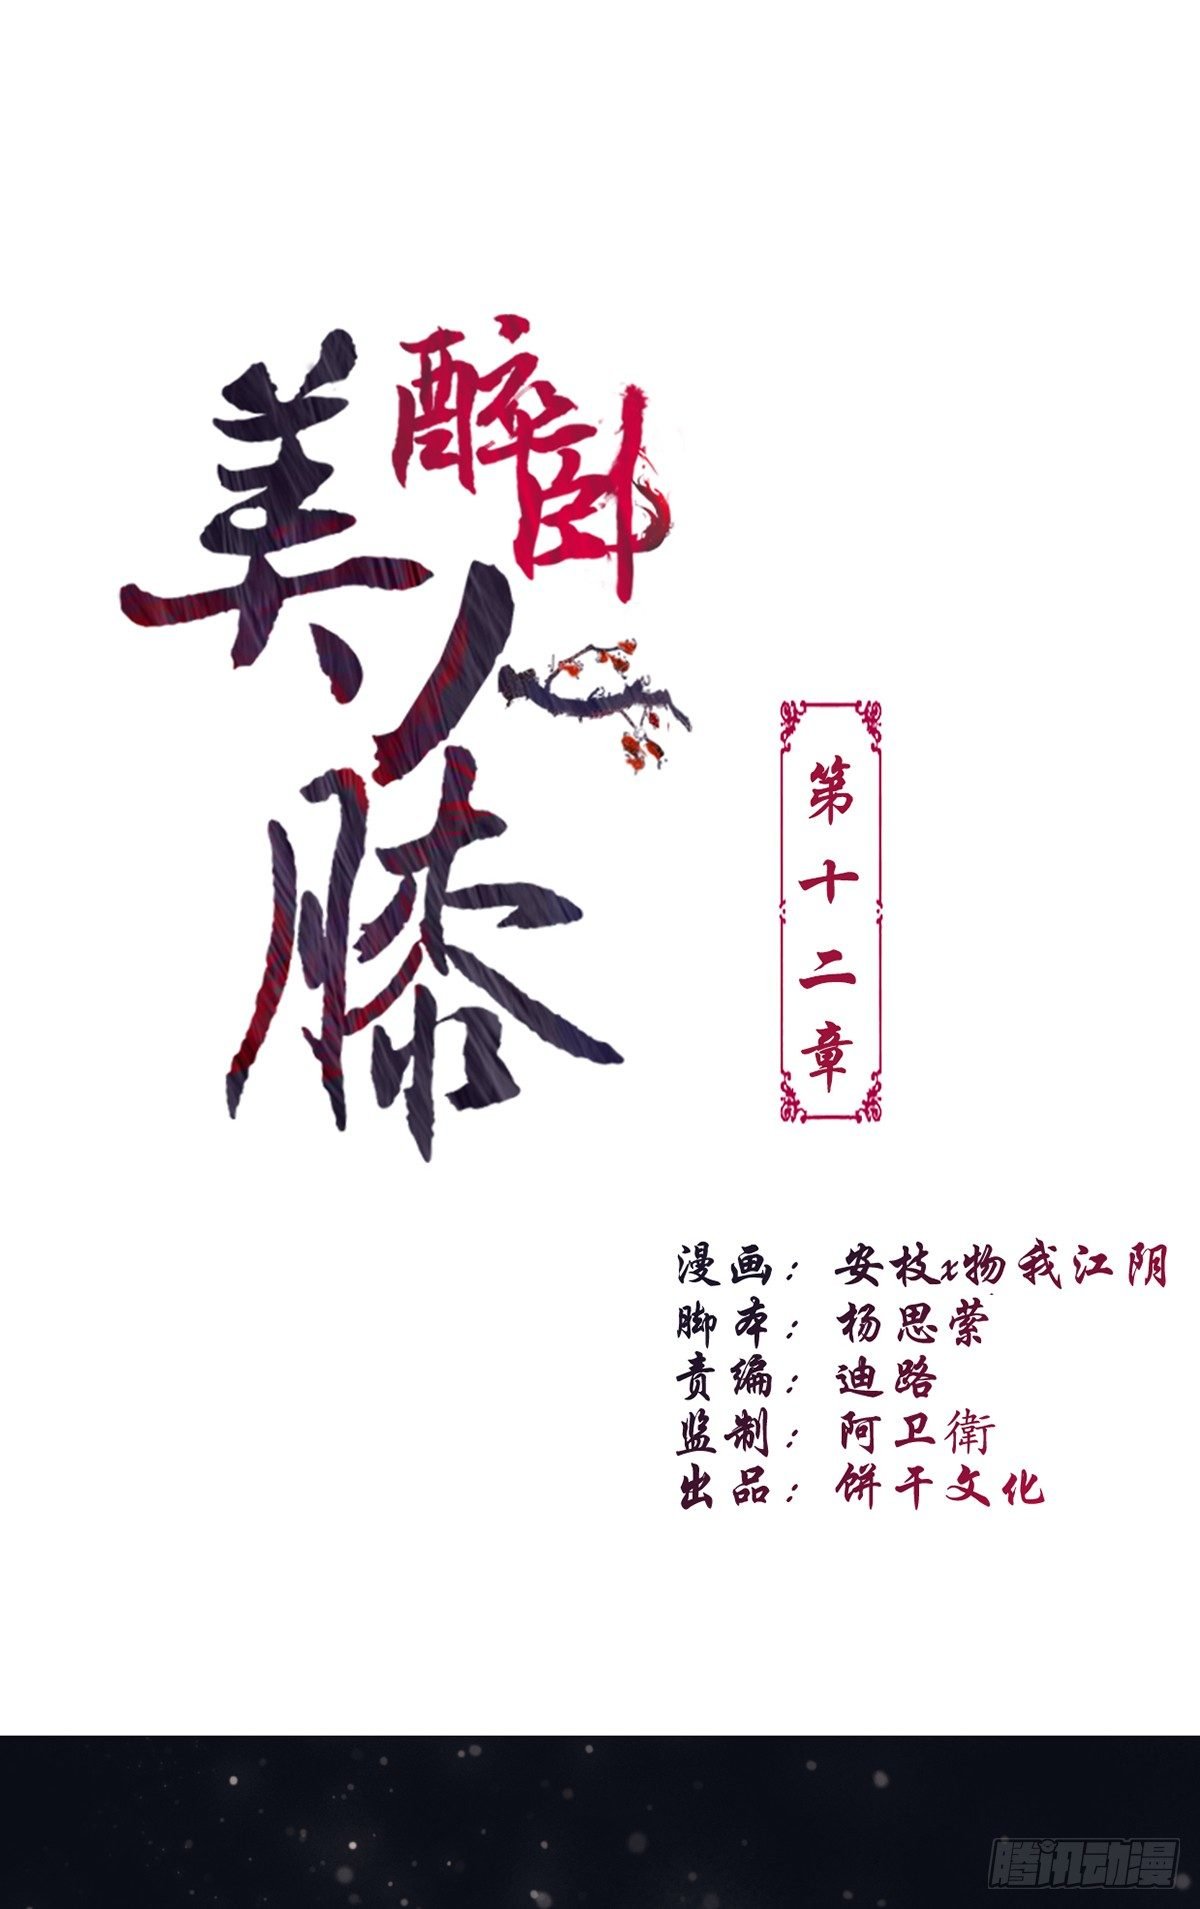 醉卧
美人膝
第十二章
漫画：安枝x物我江阴
脚本：杨思萦
责编：迪路
监制：阿卫衛
出品：饼干文化
腾讯动漫